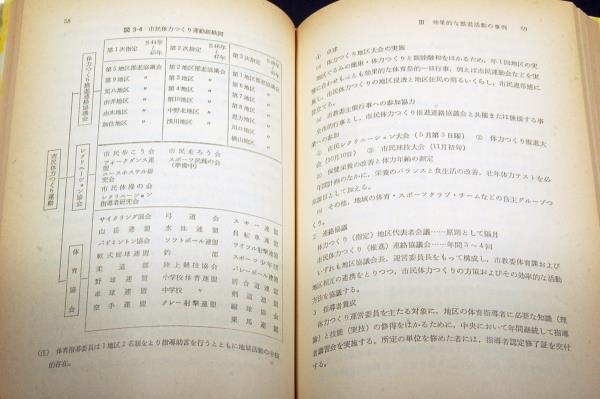 58
図 3-4 市民体力つくり運動組織図
市民体力つくり運動
体力つくり推進連絡協議会
第1次指定 S.44年〜45年
第2次指定 S.46年〜47年
第3次指定
第5地区推進協議会
第9地区 〃
元八地区 〃
由井地区 〃
由木地区 〃
加住地区 〃
第2地区推進協議会
第4地区 〃
第10地区 〃
中野北地区 〃
浅川地区 〃
第1地区推進協議会
第3地区 〃
第6地区 〃
恩方地区 〃
川口地区 〃
横山地区 〃
レクリエーション協会
市民歩こう会
フォークダンス連盟
ユースホステル研究会
市民体操の会
レクリエーション指導者研究会
市民走ろう会
スポーツ民踊の会
(準備中)
体育協会
サイクリング協会
山岳連盟
バドミントン協会
軟式庭球連盟
柔道部
野球連盟
卓球連盟
空手連盟
弓道会
水泳連盟
ソフトボール連盟
釣部
陸上競技協会
中学校体育連盟
中学校野球連盟
クレー射撃連盟
スキー連盟
自転車連盟
ライフル射撃連盟
スポーツ少年団
バレーボール連盟
居合道連盟
剣道連盟
庭球連盟
乗馬連盟
(注) 体育指導委員は1地区2名割をより指導助言を行うとともに地域活動の中核
的存在。
Ⅲ 効果的な推進活動の事例 59
④ 卓球
(5) 体力つくり地区大会の実施
地区ぐるみの健康・体力つくりと親睦融和をはかるため、年1回地区の実
情に合わせもっとも効果的な体育祭的一日行事、例えば市民運動会などを実
施し、市民体力つくりの地区浸透と地区住民の明るいくらし、市民連帯感に
役立てる。
(6) 市教委主催行事への参加協力
全市的行事とし、市民体力つくり推進連絡協議会と共催または後援する事
業への参加
① 市民レクリエーション大会(5月第3日曜) ② 体力つくり推進大
会(10月10日) ③ 市民球技大会(11月初旬)
(7) 保健栄養の改善と体力年齢の測定
年間計画のなかに、栄養のバランスと食生活の改善、壮年体力テストを必
須課目として加える。
(8) その他、地域の体育・スポーツクラブ・チームなどの自主グループつ
くり。
2 連絡協議
体力つくり(指定)地区代表者会議……原則として隔月
市民体力つくり(推進)連絡協議会……年間3〜4回
いずれも地区協議会長、運営委員長をもって構成し、市教委体育課および
地区相互の連携をとりつつ、市民体力つくりの方策およびその効率的な活動
方法を協議する。
3 指導者養成
体力つくり運営委員を主たる対象に、地区の体育指導者に必要な知識(理
論)と技能(実技)の修得をはかるために、中央において年間継続して指導
者講習会を実施する。所定の単位を修めた者には、指導者認定修了証を交付
する。